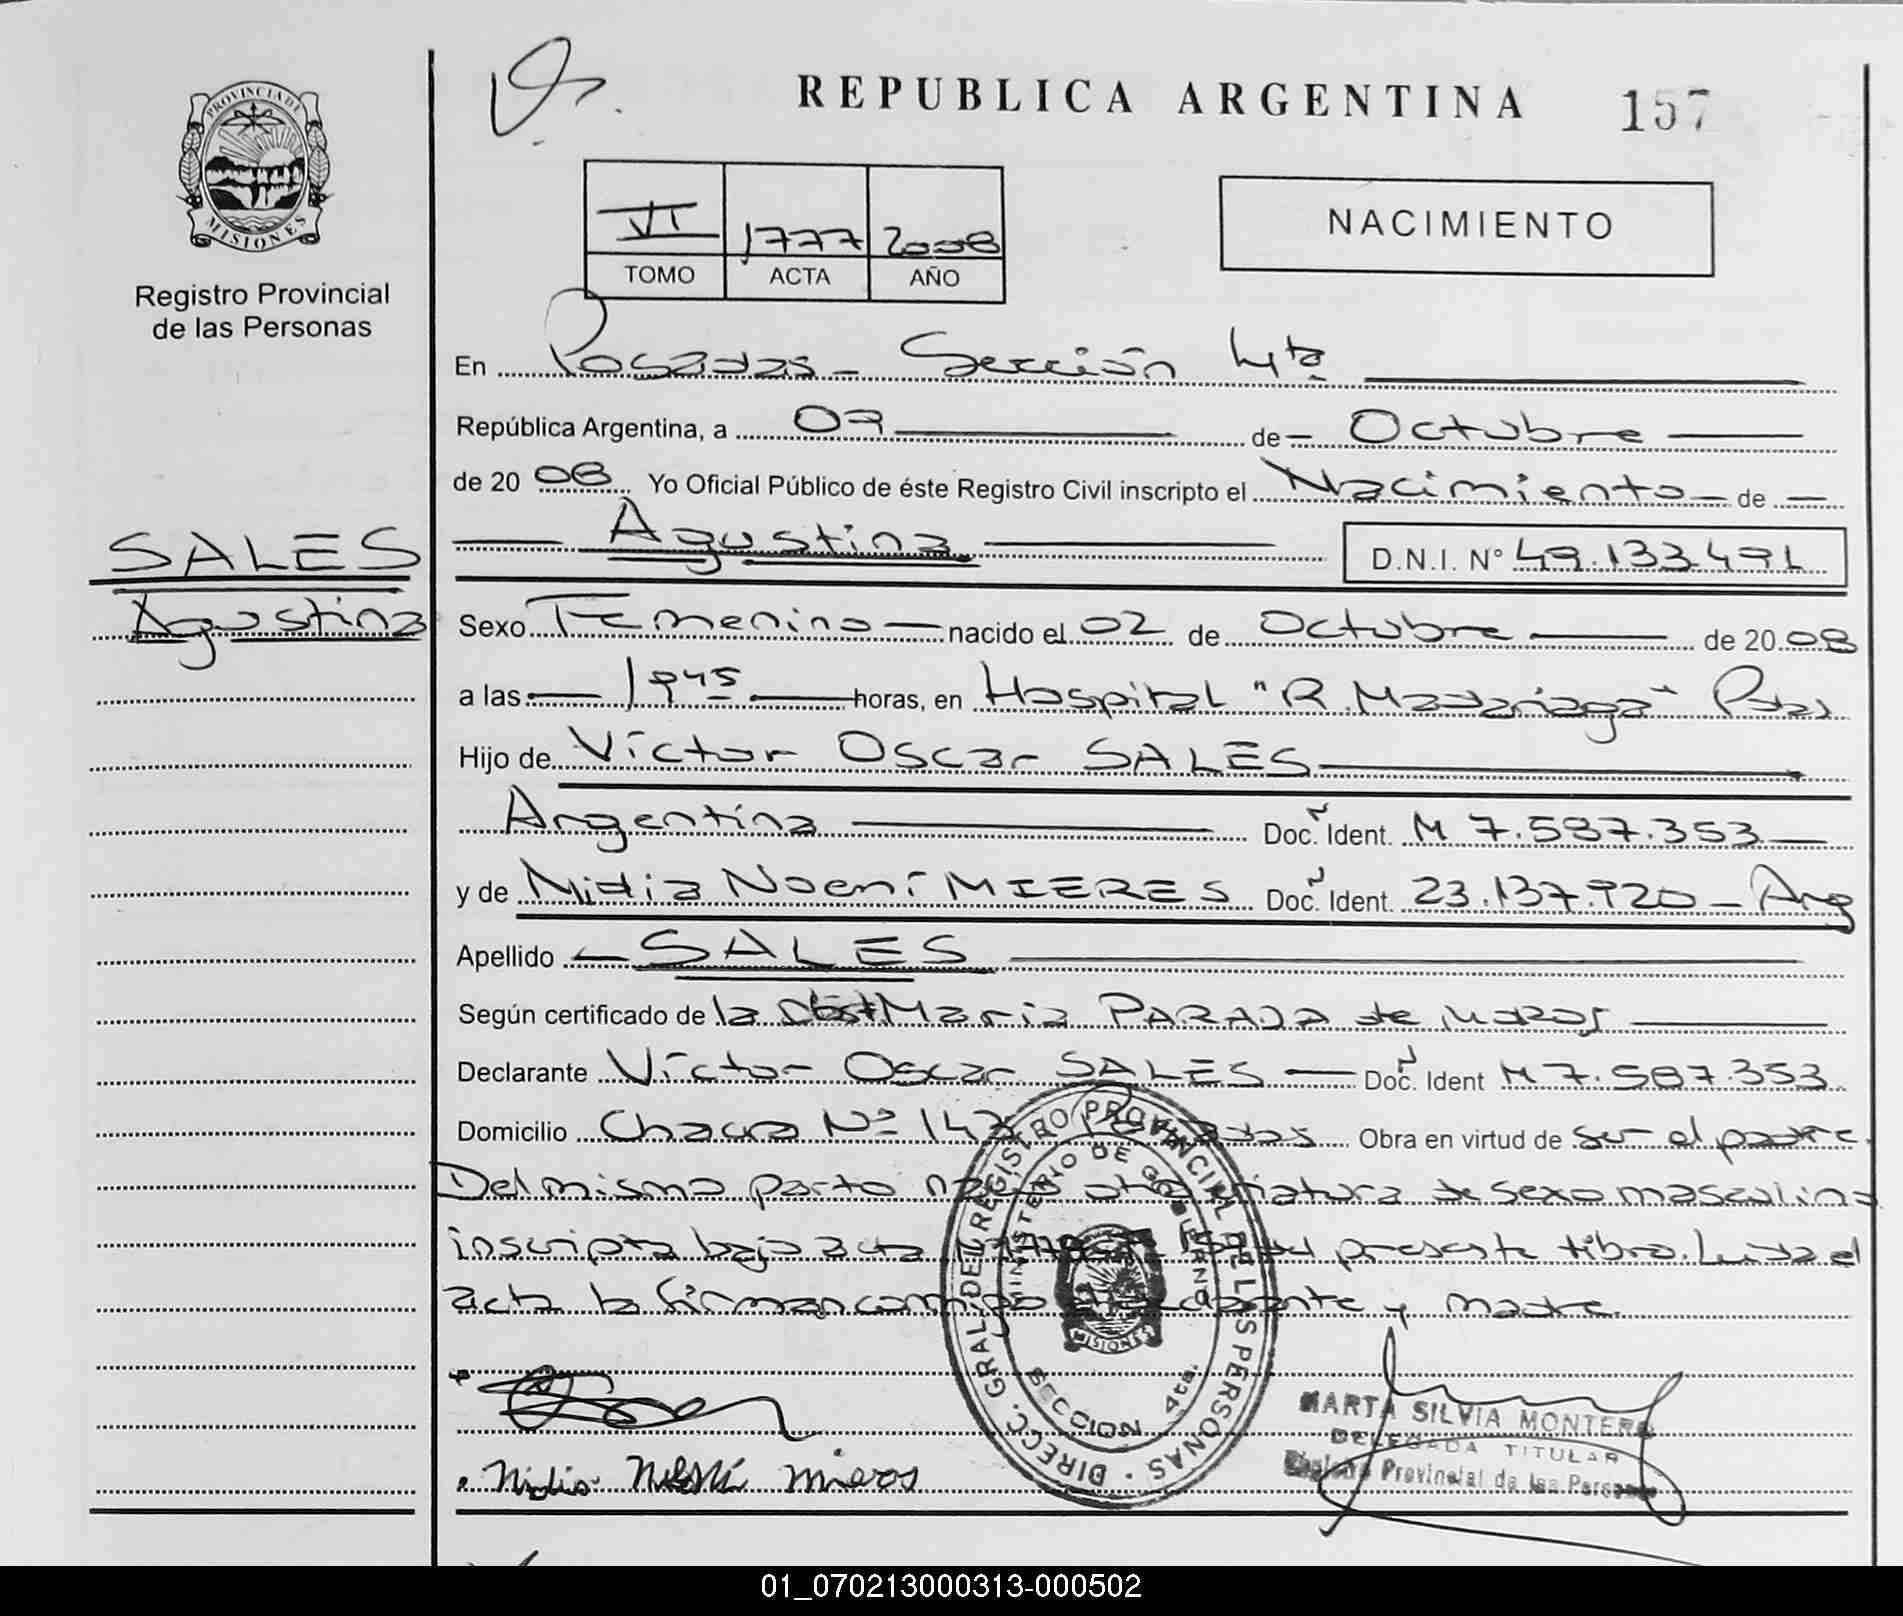 PROVINCIA DE
MISIONES
Registro Provincial
de las Personas
REPUBLICA ARGENTINA 157
VI 1777 2008
TOMO ACTA AÑO
NACIMIENTO
En Posadas - Sección 4ta
República Argentina, a 07 de Octubre
de 2008 Yo Oficial Público de éste Registro Civil inscripto el Nacimiento de
Agustina D.N.I. N° 49.133.491
SALES
Agustina
Sexo Femenino nacido el 02 de Octubre de 2008
a las 1945 horas, en Hospital "R. Madariaga" Pdas
Hijo de Víctor Oscar SALES
Argentina Doc. Ident. M 7.587.353
y de Nidia Noemí MIERES Doc. Ident. 23.137.920 - Arg
Apellido SALES
Según certificado de la Obst María PARADA de
Declarante Víctor Oscar SALES Doc. Ident M 7.587.353
Domicilio Chacra Nº 147 Posadas Obra en virtud de ser el padre.
Del mismo parto nació otra criatura de sexo masculino
inscripta bajo acta 1778 del presente libro. Leída el
acta la firman conmigo el declarante y madre.
DIRECC. GRAL. DEL REGISTRO PROVINCIAL DE LAS PERSONAS
MINISTERIO DE GOBIERNO
MISIONES
SECCION 4ta.
Nidia Noemí Mieres
MARTA SILVIA MONTERO
DELEGADA TITULAR
Registro Provincial de las Personas
01_070213000313-000502